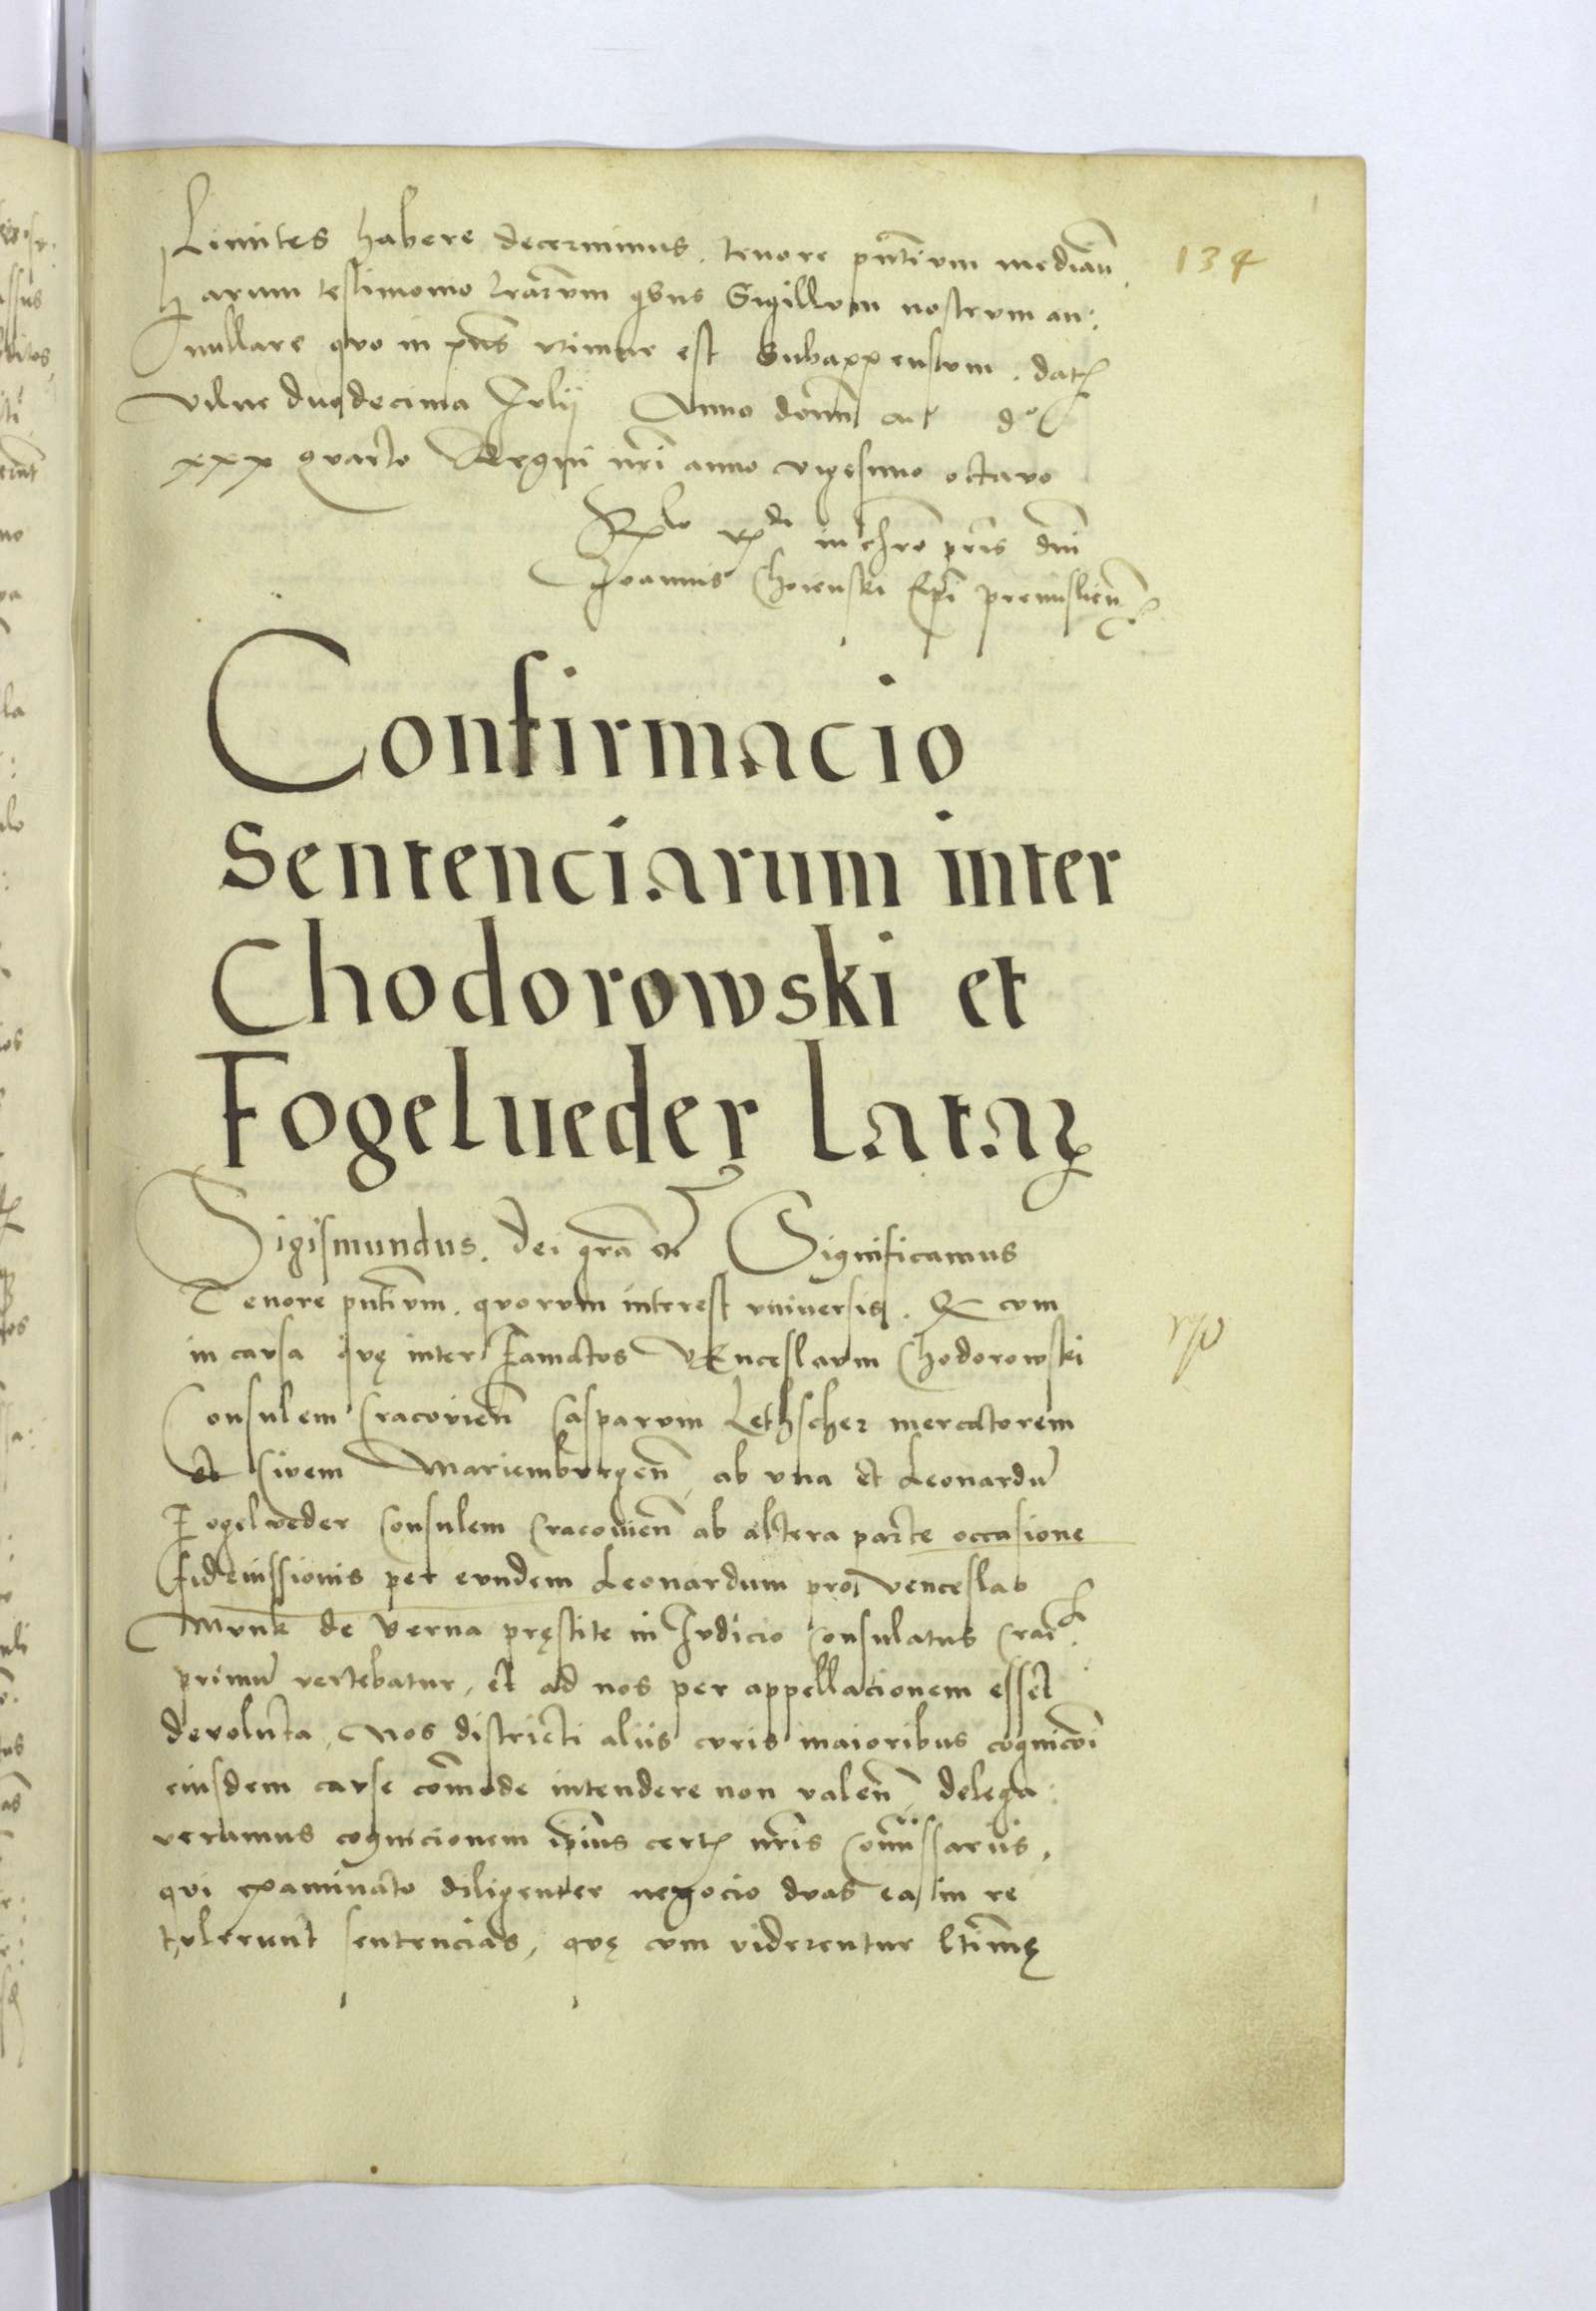 Limites habere decernimus. tenore pn̄tium mediān. 134
harum testimonio lr̄arum qbus Sigillum nostrum an:
nullare quo in pn̄s utimur est Subappensum. dat
Vilne duodecima Julij Anno domī
xxx quarto Regni nr̄i anno vigesimo octavo
in chro pr̄is dn̄i
Joannis Choienski Ep̄i premislien̄
Confirmacio
Sentenciarum inter
Chodorowski et
Fogelueder latar
Sigismundus. Dei gr̄a etc Significamus
Tenore pn̄tium. quorum interest universis. Q cum
in causa quę inter Famatos Venceslaum Chodorowski
Consulem Cracovien̄ Casparum Lethscher mercatorem
et Civem Mariemburgen̄ ab una et Leonardū
Fogelveder Consulem Cracovien̄ ab altera parte occasione
fideiussionis per eundem Leonardum pro Venceslao
Munk de Verna pręstite in Judicio Consulatus Crac
primū vertebatur, et ad nos per appellacionem esset
devoluta, Nos districti aliis curis maioribus cognicōi
eiusdem cause com̄ode intendere non valen̄, delega:
veramus cognicionem ip̄ius cert nr̄is Com̄issariis,
qui examinato diligenter negocio duas ea in re
tulerunt sentencias, quę cum viderentur ltim̄ę